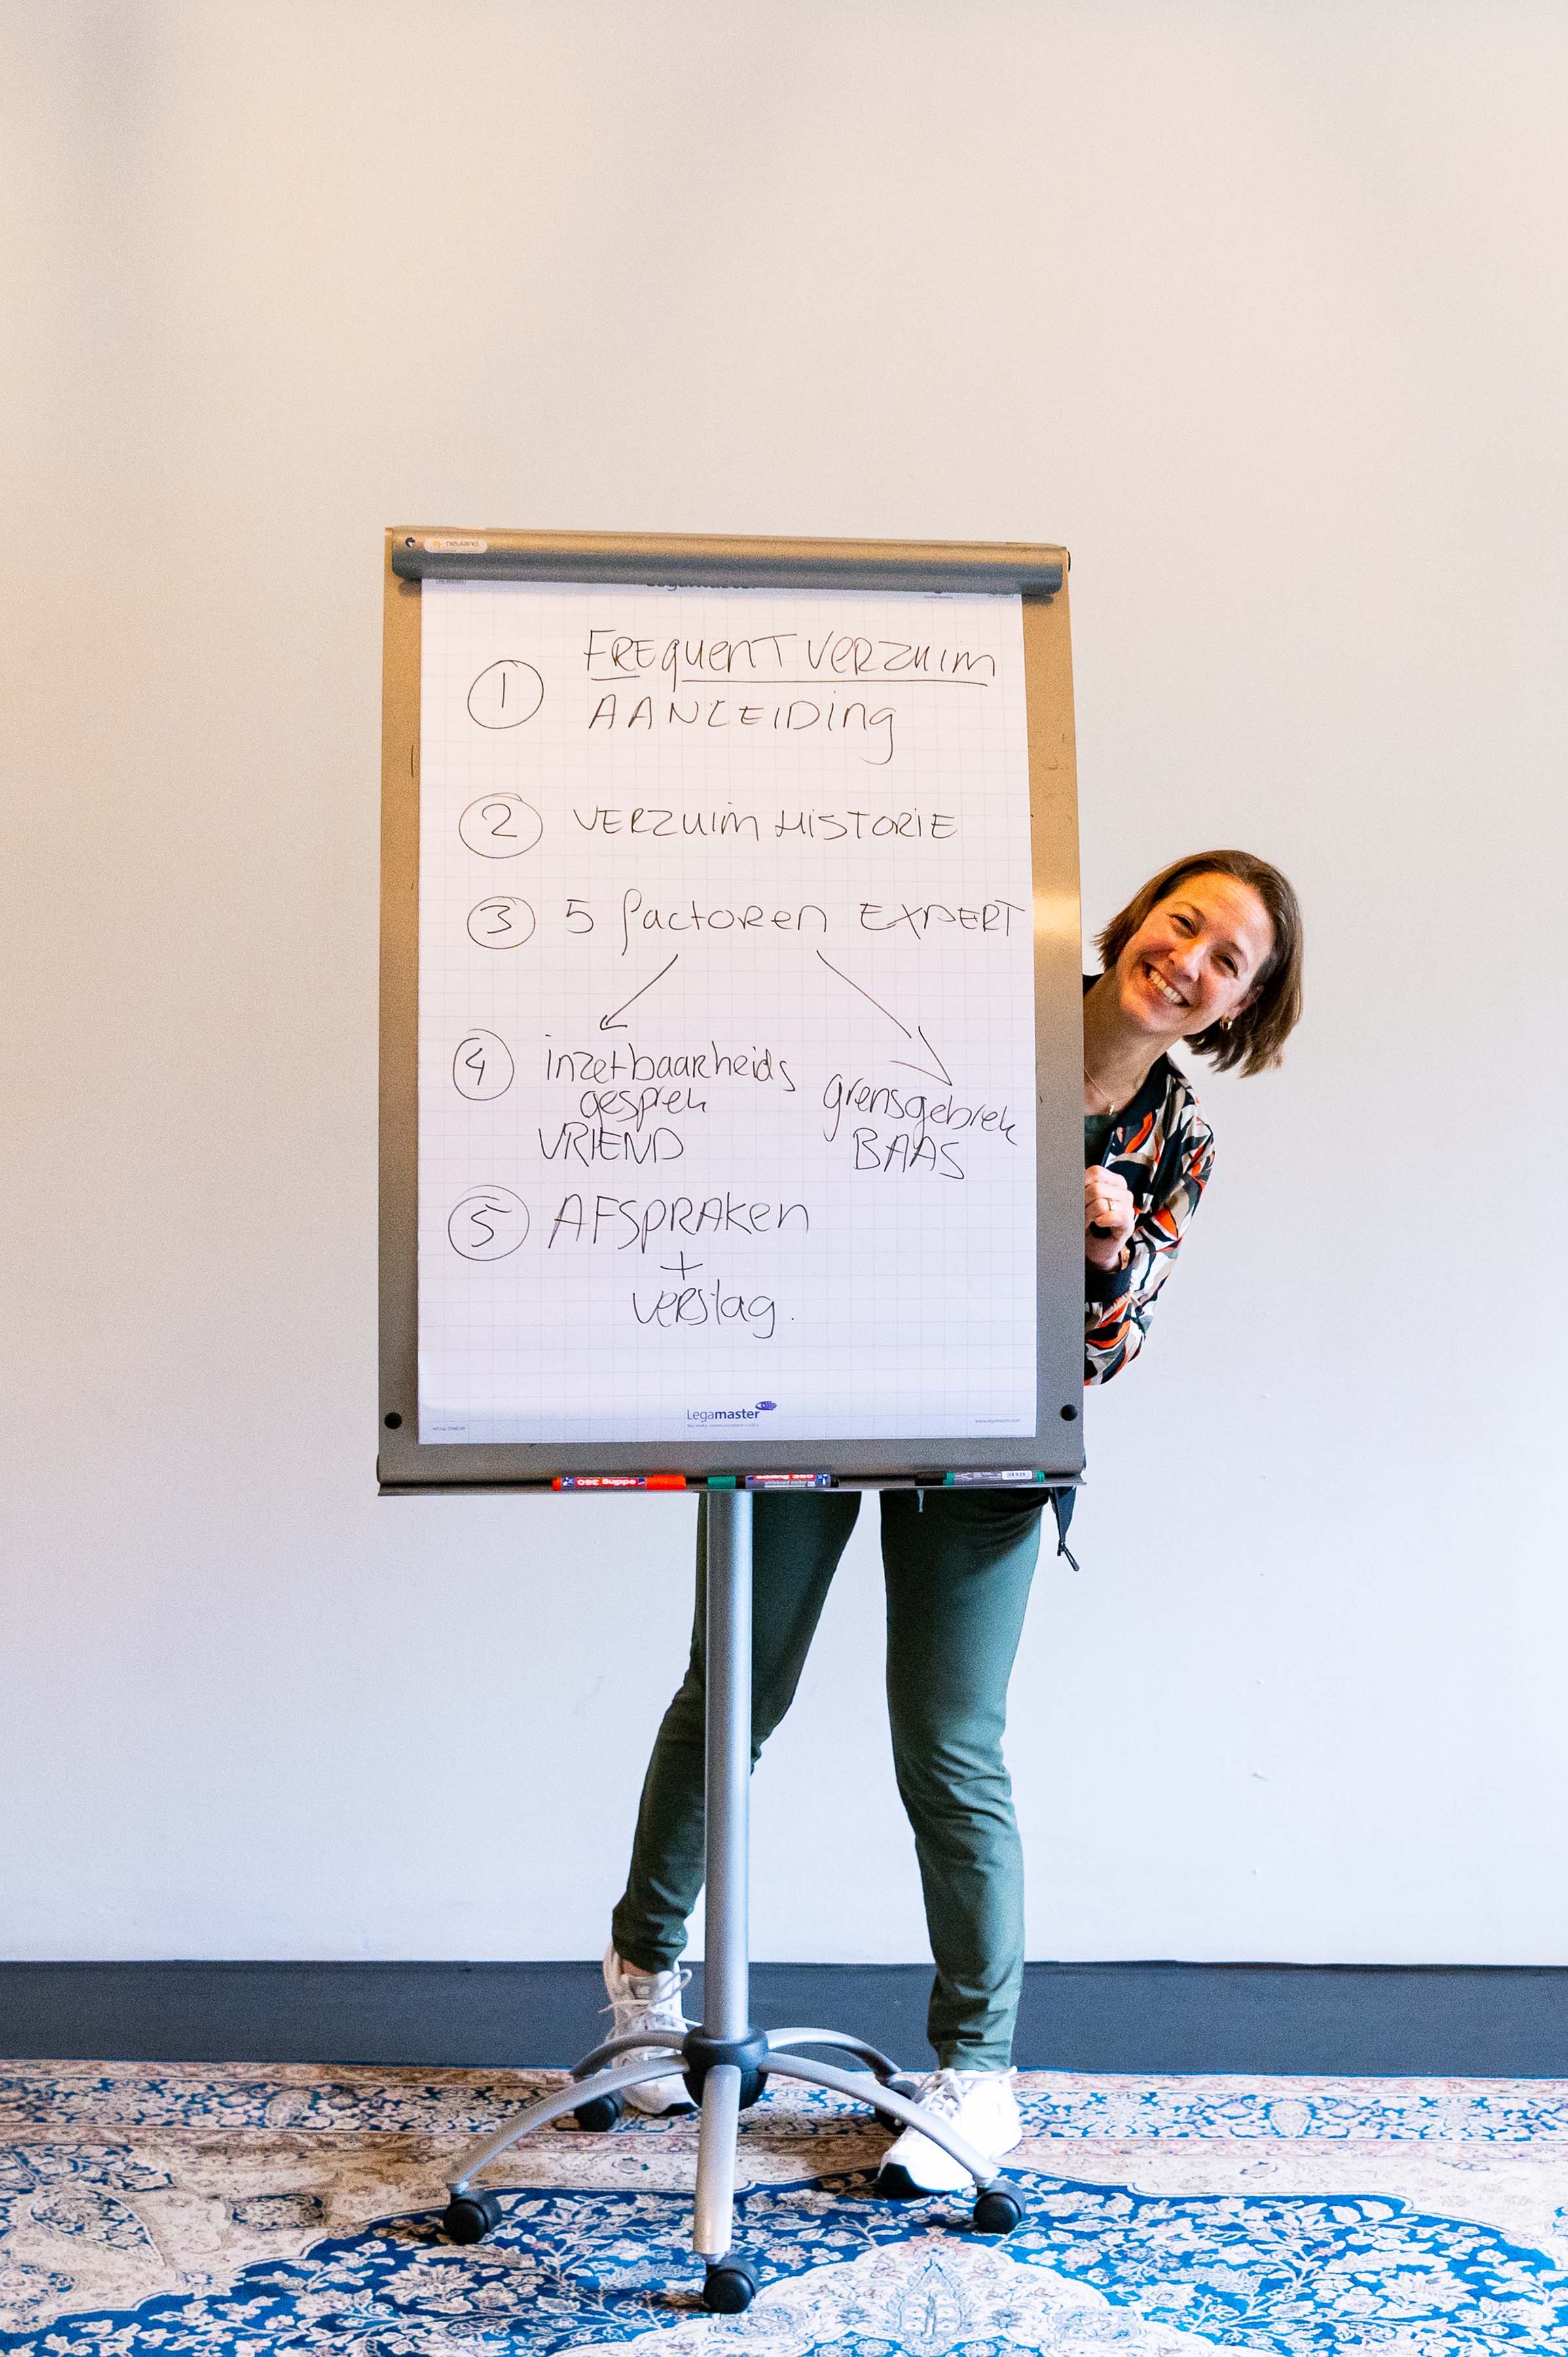 neuland
Legamaster
1 FREQUENT VERZUIM
AANLEIDING
2 VERZUIM HISTORIE
3 5 factoren EXPERT
4 inzetbaarheids
gesprek
VRIEND
grensgebrek
BAAS
5 AFSPRAKEN
+
verslag.
Legamaster
edding 360